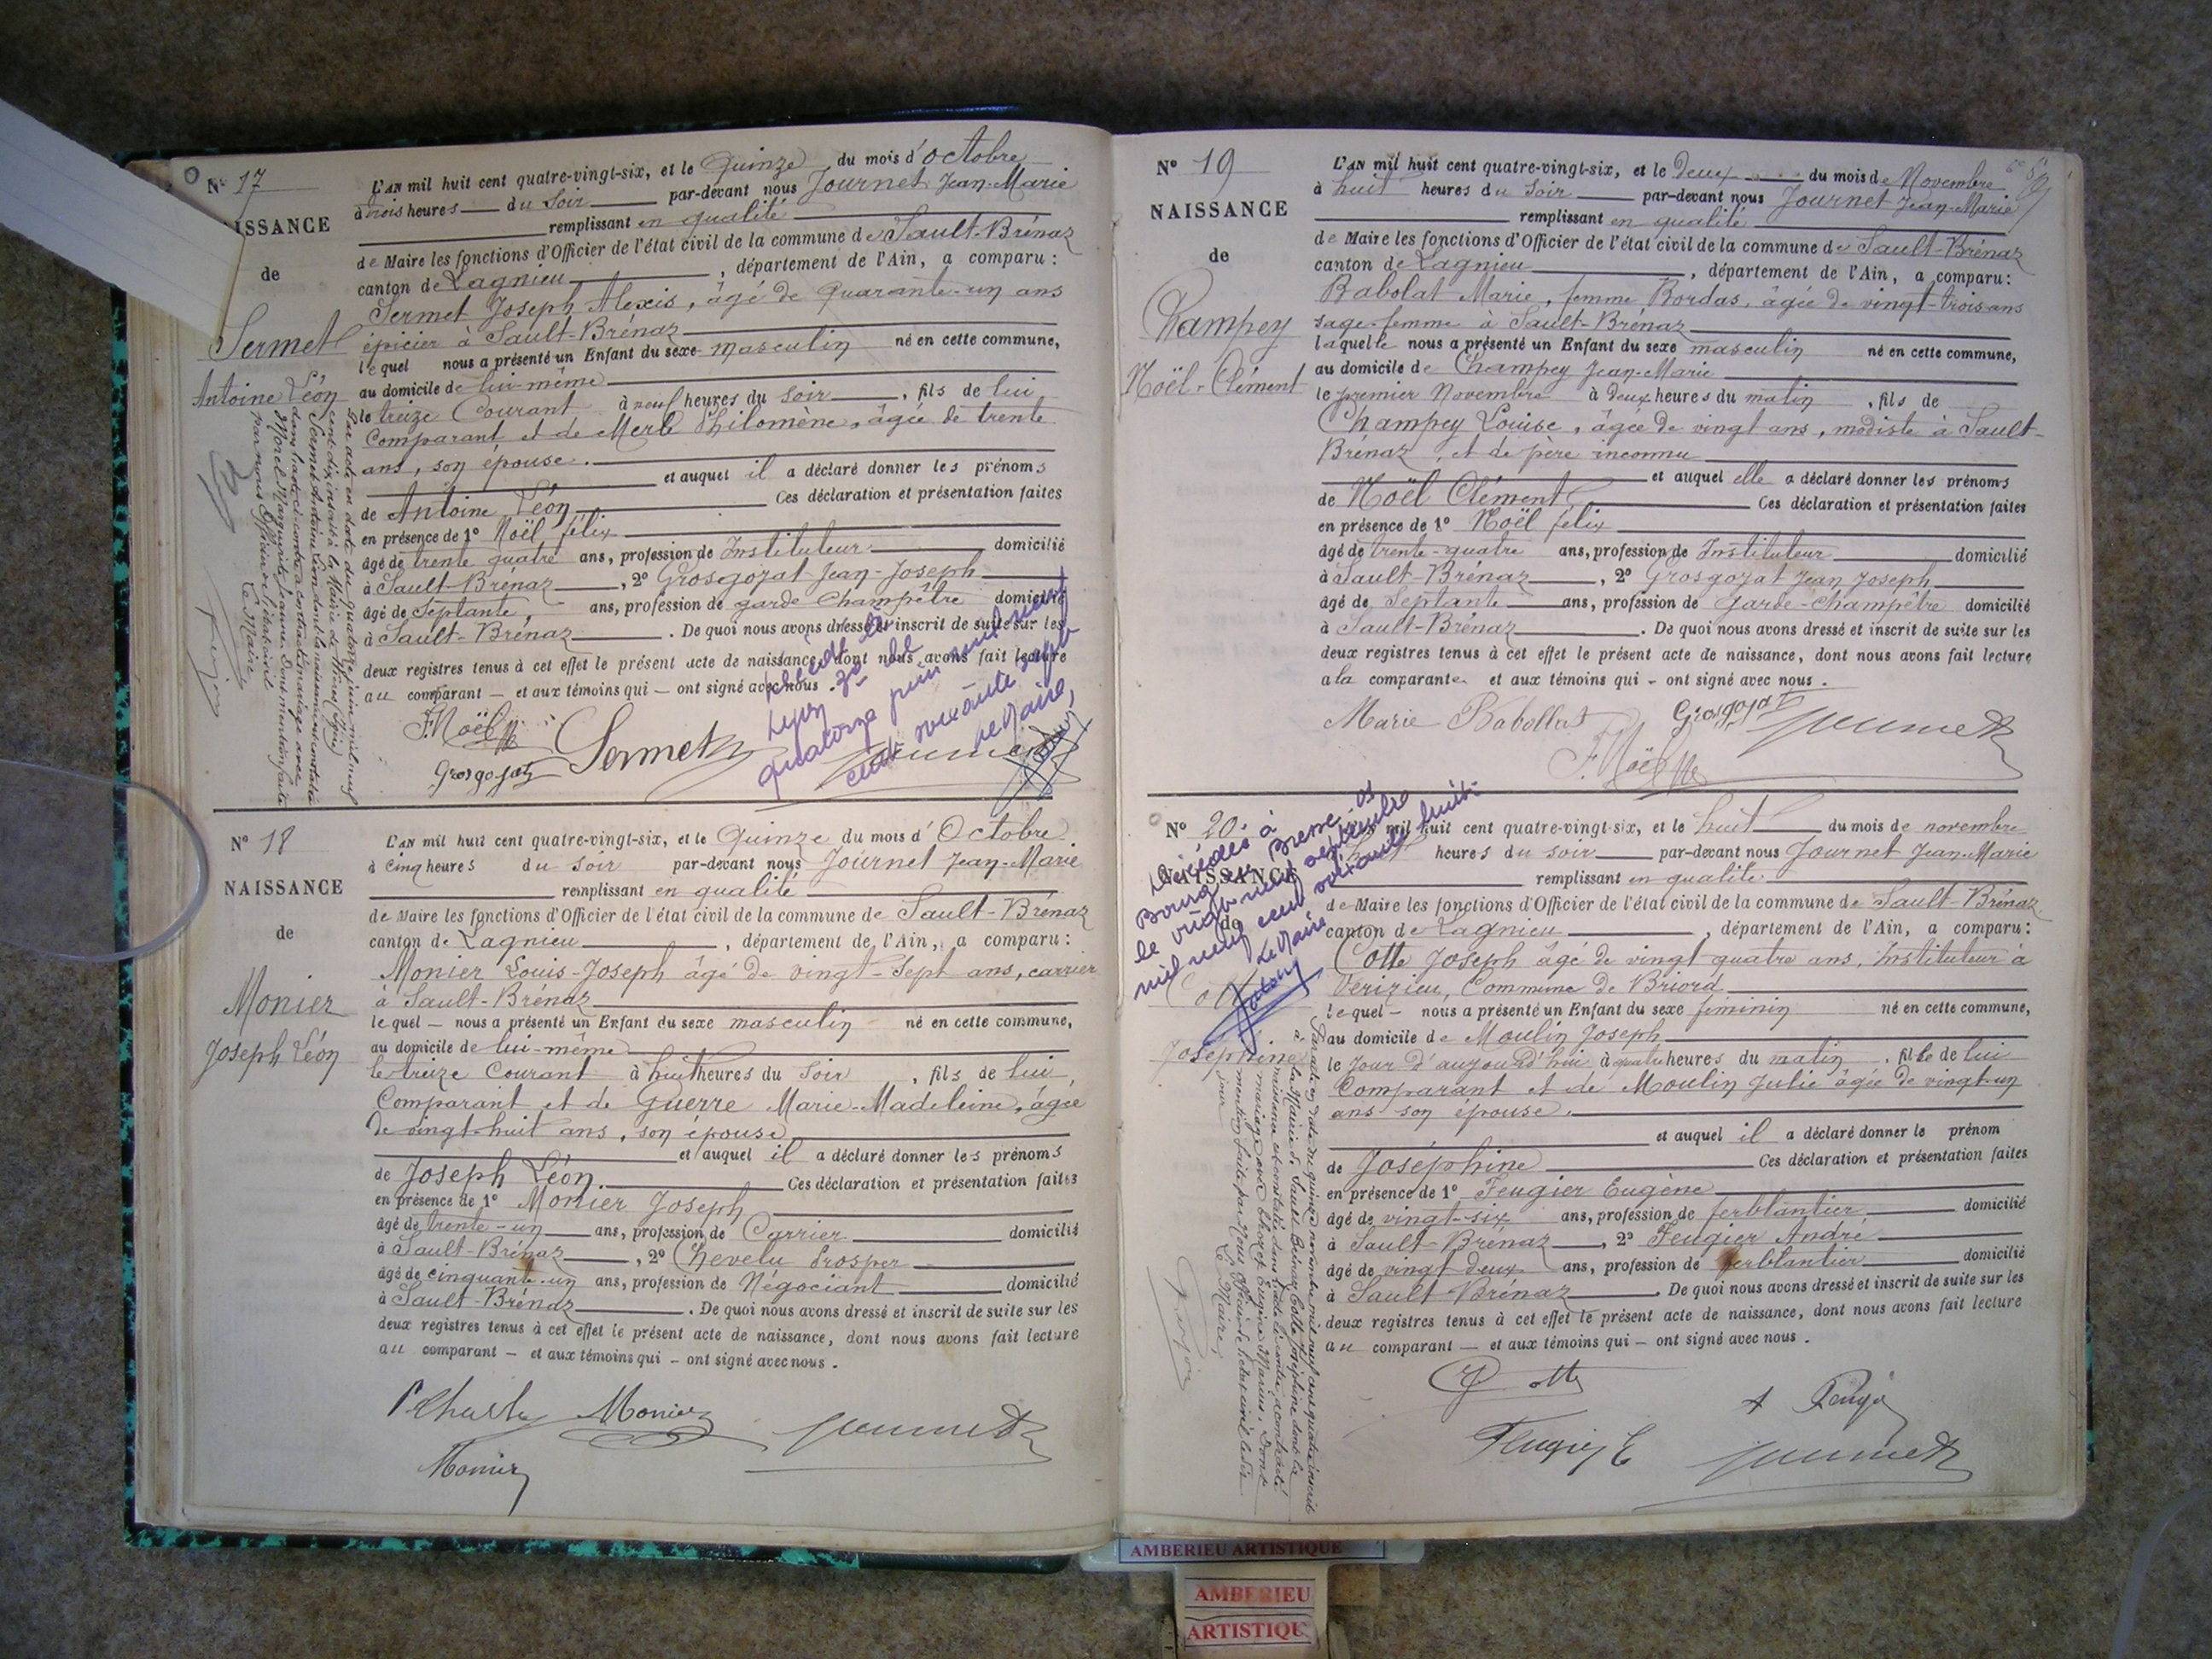 N° 17
NAISSANCE
de
Sermet
Antoine Léon
L'AN mil huit cent quatre-vingt-six, et le Quinze du mois d'octobre
à trois heures du Soir par-devant nous Journet Jean-Marie
remplissant en qualité
de Maire les fonctions d'Officier de l'état civil de la commune de Sault-Brénaz
canton de Lagnieu, département de l'Ain, a comparu :
Sermet Joseph Alexis, âgé de Quarante-un ans
épicier à Sault-Brénaz
lequel nous a présenté un Enfant du sexe masculin né en cette commune,
au domicile de lui-même
le treize Courant à neuf heures du Soir, fils de lui
Comparant et de Merle Philomène, âgée de trente
ans, son épouse.
et auquel il a déclaré donner les prénoms
de Antoine Léon Ces déclaration et présentation faites
en présence de 1° Noël félix
âgé de trente quatre ans, profession de Instituteur domicilié
à Sault-Brénaz, 2° Grosgojat Jean-Joseph
âgé de Septante, ans, profession de garde Champêtre domicilié
à Sault-Brénaz. De quoi nous avons dressé et inscrit de suite sur les
deux registres tenus à cet effet le présent acte de naissance, dont nous avons fait lecture
au comparant — et aux témoins qui — ont signé avec nous.
F. Noël
Grosgojat
Sermet
Journet
quatorze juin mil neuf
cent soixante sept
Le Maire,
Par acte en date du quatorze juin mil neuf
cent dix inscrit à la Mairie de
Sermet Antoine Léon dont la naissance est constatée
dans l'acte ci-contre a contracté mariage avec
Morel Marguerite Dont mention faite
par nous Officier de l'état civil
Le Maire
N° 18
NAISSANCE
de
Monier
Joseph Léon
L'AN mil huit cent quatre-vingt-six, et le Quinze du mois d'Octobre
à Cinq heures du Soir par-devant nous Journet Jean-Marie
remplissant en qualité
de Maire les fonctions d'Officier de l'état civil de la commune de Sault-Brénaz
canton de Lagnieu, département de l'Ain, a comparu :
Monier Louis-Joseph âgé de vingt-Sept ans, carrier
à Sault-Brénaz
lequel — nous a présenté un Enfant du sexe masculin né en cette commune,
au domicile de lui-même
le treize Courant à huit heures du Soir, fils de lui,
Comparant et de Guerre Marie-Madeleine, âgée
de vingt-huit ans, son épouse
et auquel il a déclaré donner les prénoms
de Joseph Léon. Ces déclaration et présentation faites
en présence de 1° Monier Joseph
âgé de trente-un ans, profession de Carrier domicilié
à Sault-Brénaz, 2° Chevelu Prosper
âgé de cinquante-un ans, profession de Négociant domicilié
à Sault-Brénaz. De quoi nous avons dressé et inscrit de suite sur les
deux registres tenus à cet effet le présent acte de naissance, dont nous avons fait lecture
au comparant — et aux témoins qui — ont signé avec nous.
Monier
Journet
Monier
N° 19
NAISSANCE
de
Champey
Noël-Clément
L'AN mil huit cent quatre-vingt-six, et le Deux du mois de Novembre
à huit heures du Soir par-devant nous Journet Jean-Marie
remplissant en qualité
de Maire les fonctions d'Officier de l'état civil de la commune de Sault-Brénaz
canton de Lagnieu, département de l'Ain, a comparu :
Babolat Marie, femme Bordas, âgée de vingt-trois ans
sage-femme à Sault-Brénaz
laquelle nous a présenté un Enfant du sexe masculin né en cette commune,
au domicile de Champey Jean-Marie
le premier Novembre à Deux heures du matin, fils de
Champey Louise, âgée de vingt ans, modiste à Sault-
Brénaz, et de père inconnu
et auquel elle a déclaré donner les prénoms
de Noël Clément Ces déclaration et présentation faites
en présence de 1° Noël félix
âgé de trente-quatre ans, profession de Instituteur domicilié
à Sault-Brénaz, 2° Grosgojat Jean Joseph
âgé de Septante ans, profession de Garde-champêtre domicilié
à Sault-Brénaz. De quoi nous avons dressé et inscrit de suite sur les
deux registres tenus à cet effet le présent acte de naissance, dont nous avons fait lecture
à la comparante et aux témoins qui — ont signé avec nous.
Marie Babollat
Grosgojat
Journet
F. Noël
N° 20.
NAISSANCE
de
Cotte
Joséphine
Décédée à
Bourg en Bresse
le vingt-neuf septembre
mil neuf cent soixante huit.
Le Maire
L'AN mil huit cent quatre-vingt-six, et le huit du mois de novembre
heures du soir par-devant nous Journet Jean-Marie
remplissant en qualité
de Maire les fonctions d'Officier de l'état civil de la commune de Sault-Brénaz
canton de Lagnieu, département de l'Ain, a comparu :
Cotte Joseph âgé de vingt quatre ans, Instituteur à
Vérizieu, Commune de Briord
lequel — nous a présenté un Enfant du sexe féminin né en cette commune,
au domicile de Moulin Joseph
le Jour d'aujourd'hui à quatre heures du matin, fille de lui
Comparant et de Moulin Julie âgée de vingt-un
ans son épouse.
et auquel il a déclaré donner le prénom
de Joséphine Ces déclaration et présentation faites
en présence de 1° Feugier Eugène
âgé de vingt-six ans, profession de ferblantier domicilié
à Sault-Brénaz, 2° Feugier André
âgé de vingt deux ans, profession de ferblantier domicilié
à Sault-Brénaz. De quoi nous avons dressé et inscrit de suite sur les
deux registres tenus à cet effet le présent acte de naissance, dont nous avons fait lecture
au comparant — et aux témoins qui — ont signé avec nous.
Feugier E
Journet
AMBERIEU ARTISTIQUE
AMBERIEU
ARTISTIQUE